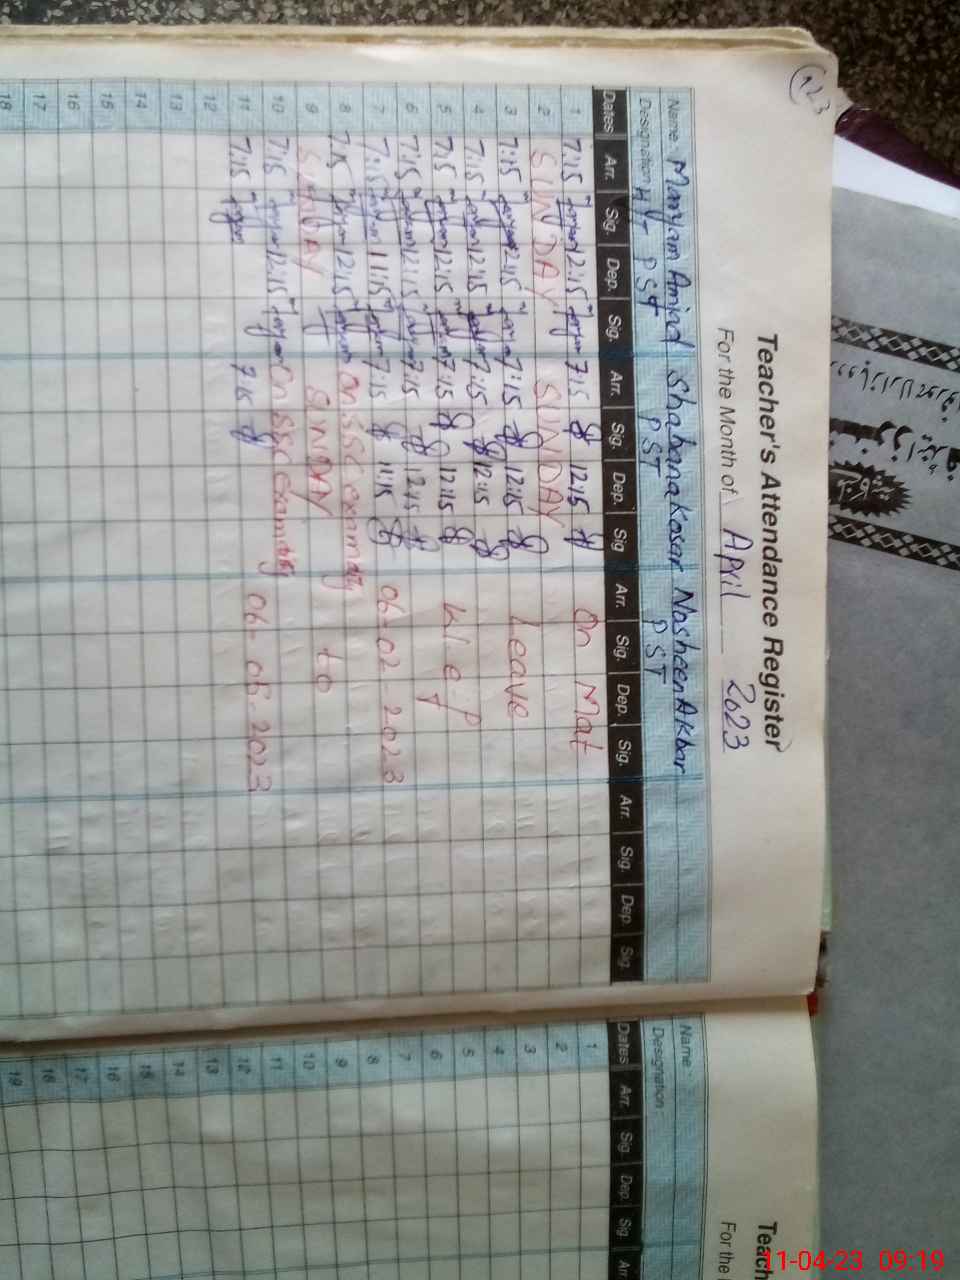 123
Teacher's Attendance Register
For the Month of April 2023
Name: Maryam Amjad Shabanakosar Nosheen Akbar
Designation HT PST PST PST
Dates Arr. Sig. Dep. Sig. Arr. Sig. Dep. Sig Arr. Sig. Dep. Sig. Arr. Sig. Dep. Sig.
1 7:15 12:15 7:15 12:15 On Mat
2 SUNDAY SUNDAY
3 7:15 12:15 7:15 12:15 Leave
4 7:15 12:15 7:15 12:15
5 7:15 12:15 7:15 12:15 w.e.f
6 7:15 12:15 7:15 12:15
7 7:15 11:15 7:15 11:15 06-02-2023
8 7:15 12:15 on SSC exam duty
9 SUNDAY SUNDAY to
10 7:15 12:15 On SSC exam duty
11 7:15 7:15 06-05-2023
12
13
14
15
16
17
18
Teach
For the
Name :
Designation :
Dates Arr. Sig. Dep. Sig. Arr
1
2
3
4
5
6
7
8
9
10
11
12
13
14
15
16
17
18
19
11-04-23 09:19